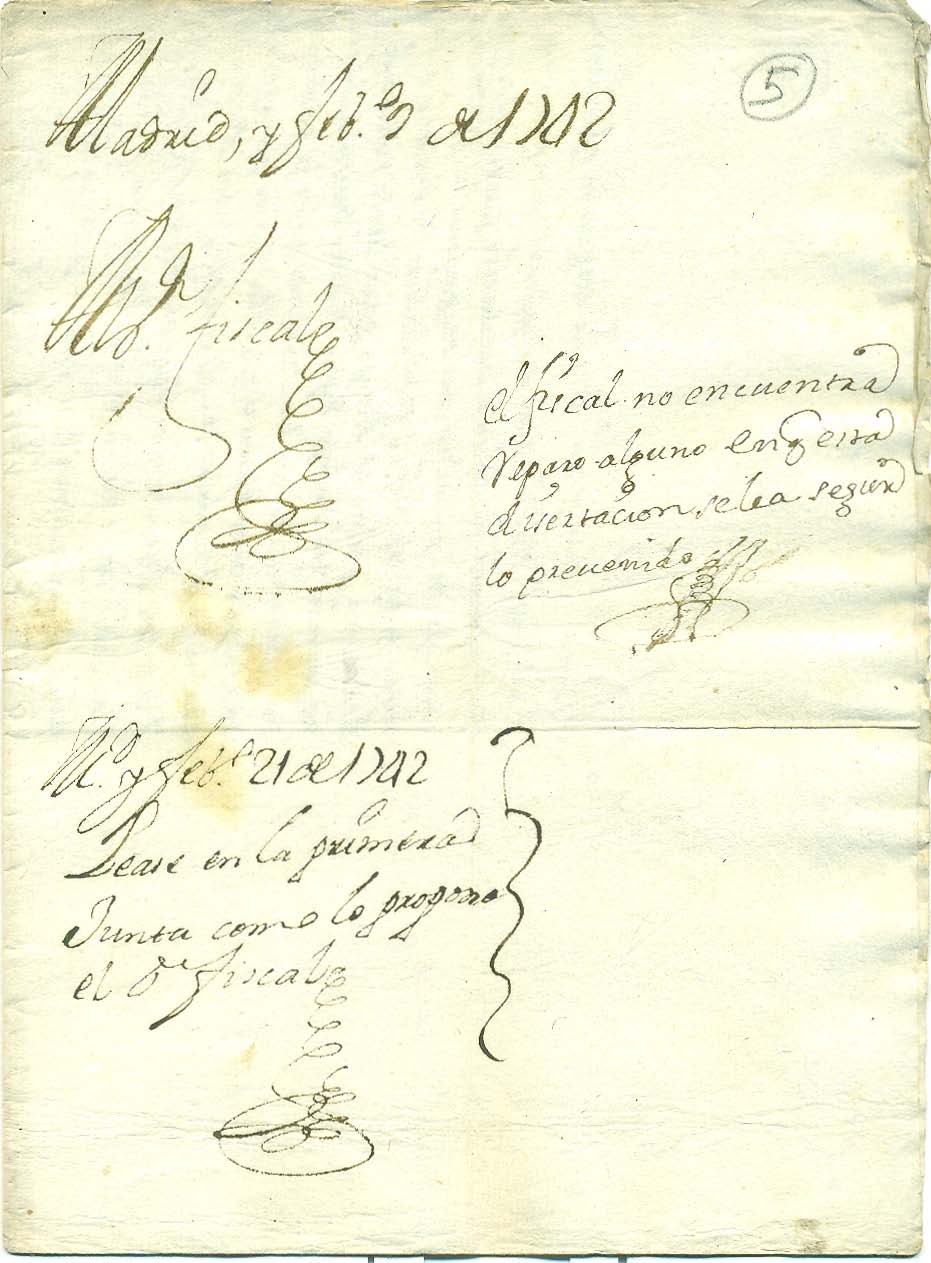 5
Madrid, y feb.º 9 de 1742
Al S.r fiscal
el fiscal no encuentra
reparo alguno en q esta
disertacion se lea segun
lo preuenido
M.d y feb.º 21 de 1742
Lease en la primera
Junta como lo propone
el S.r fiscal